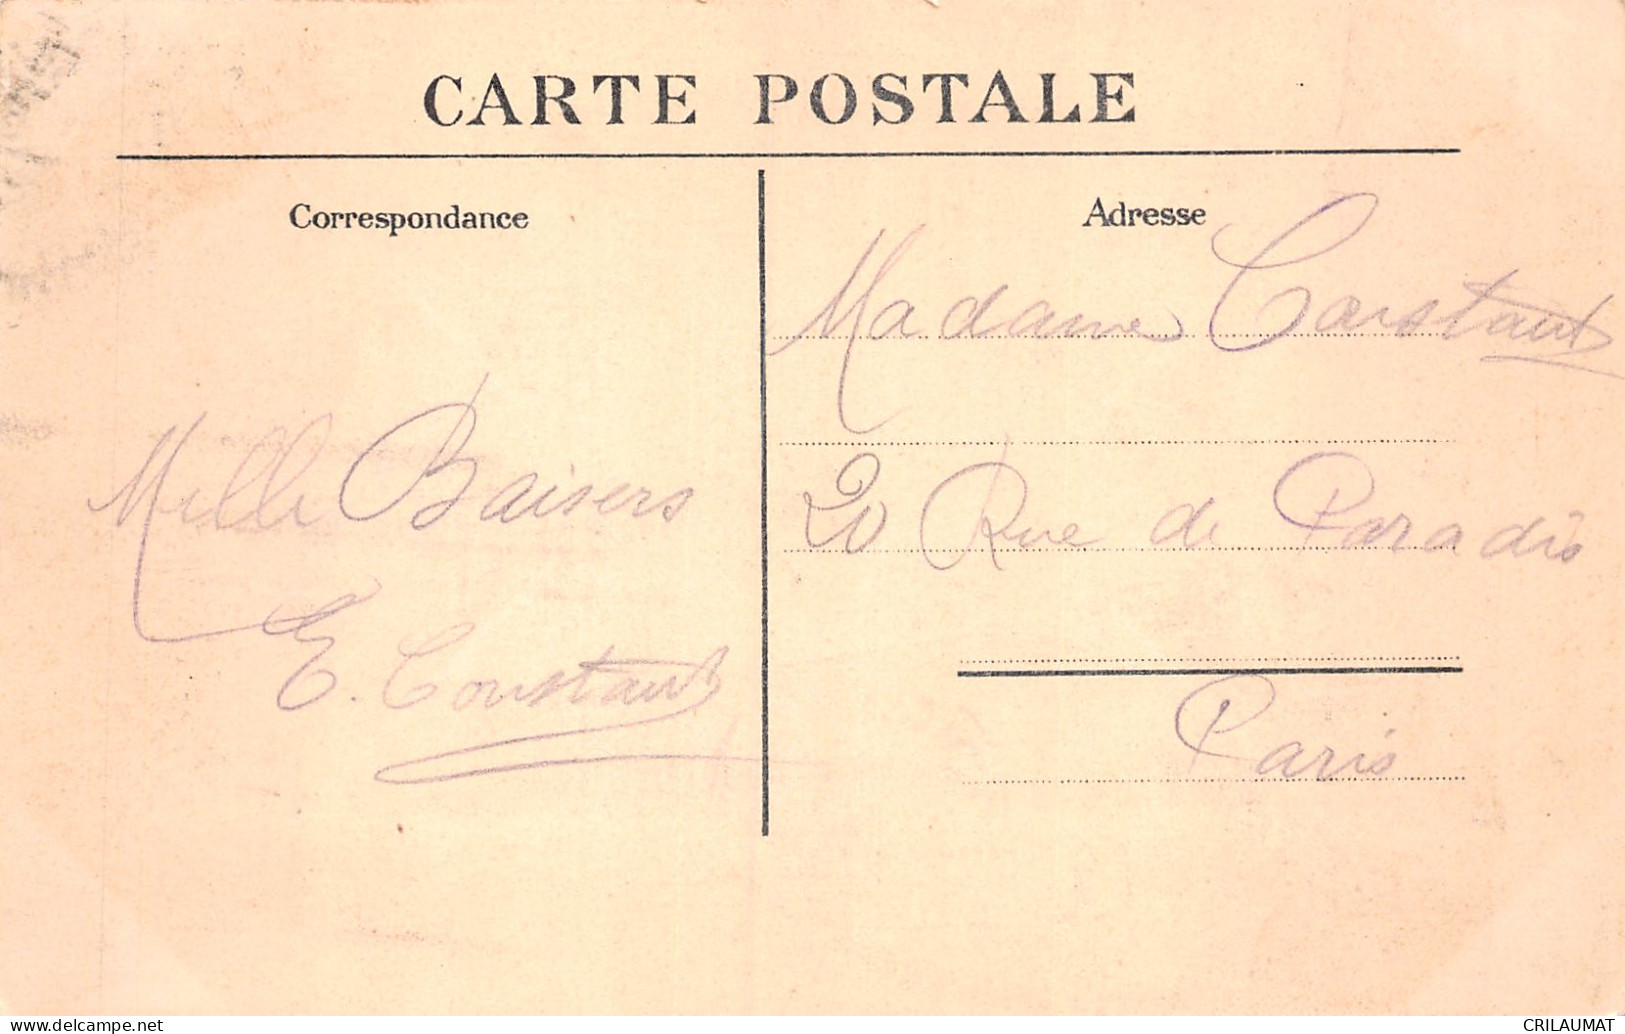 CARTE POSTALE
Correspondance
Adresse
Mille Baisers
E. Constant
Madame Constant
20 Rue de Paradis
Paris
CRILAUMAT